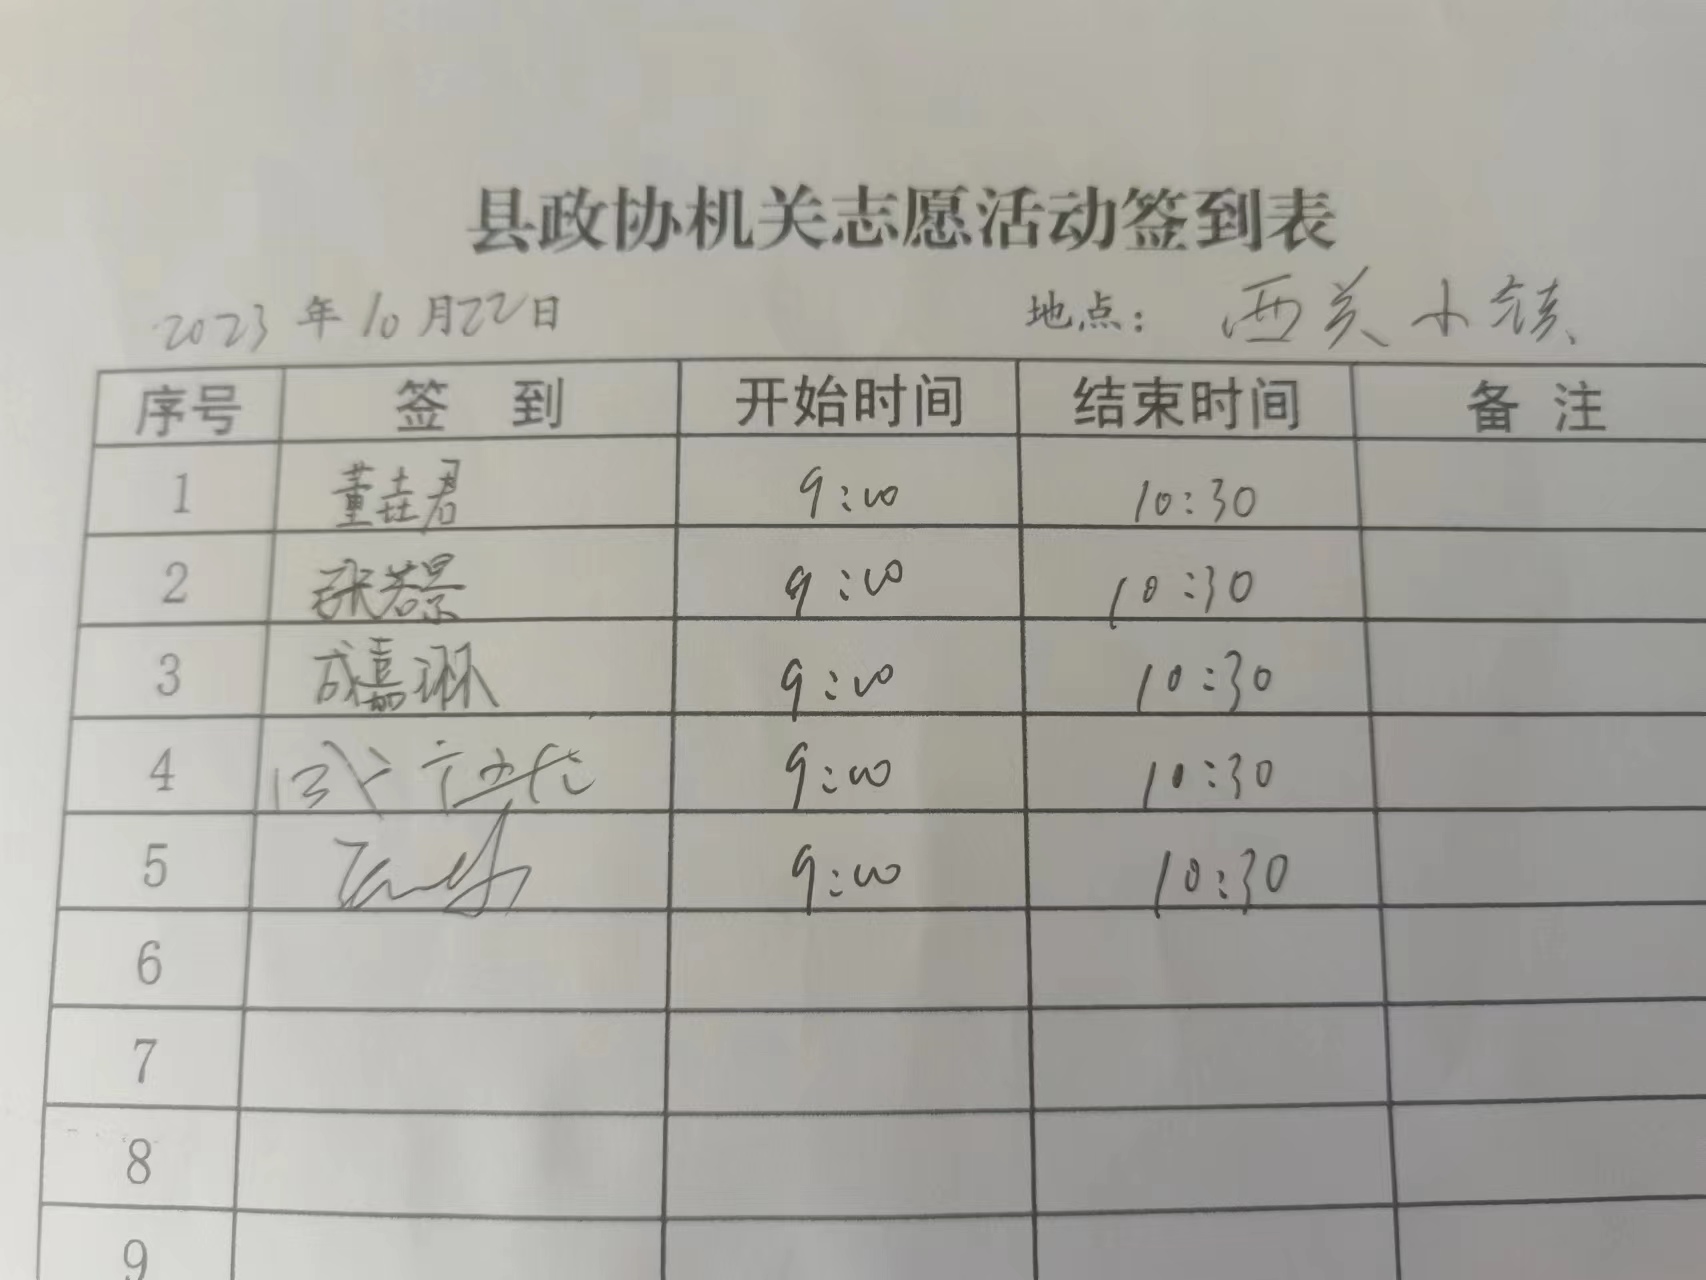 县政协机关志愿活动签到表
2023年10月22日 地点：西关小镇
序号 签到 开始时间 结束时间 备注
1 董垚君 9:00 10:30
2 张若景 9:00 10:30
3 成嘉琳 9:00 10:30
4 9:00 10:30
5 9:00 10:30
6
7
8
9